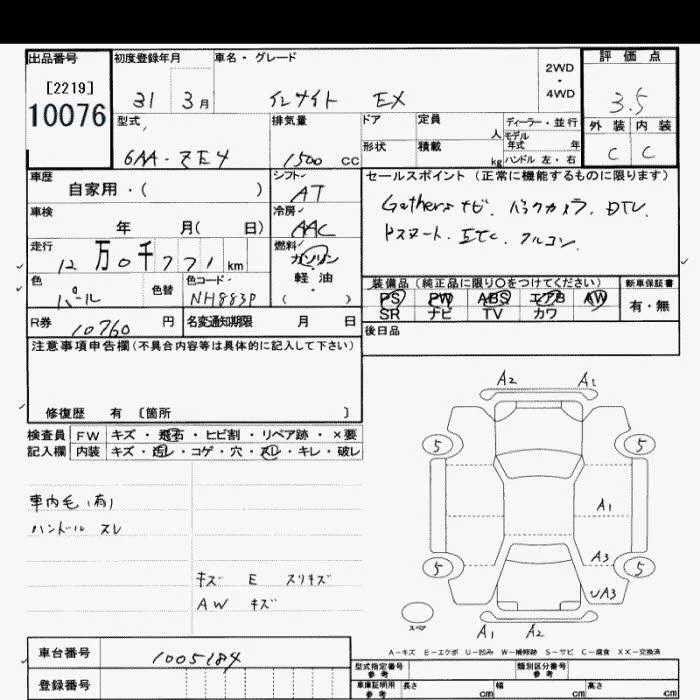 出品番号 初度登録年月 車名・グレード 2WD・4WD 評価点
[2219]
10076
31 3月 インサイト EX 3.5
型式 排気量 ドア 定員 人 ディーラー・並行 外装 内装
形状 積載 kg モデル年式 年 ハンドル 左・右
6AA-ZE4 1500 CC C C
車歴 シフト セールスポイント (正常に機能するものに限ります)
自家用・( ) AT
車検 冷房 Gathersナビ. バックカメラ. DTV.
年 月( 日) AAC Pスタート. ETC. クルコン.
走行 燃料
12万0千771km ガソリン
軽油
( )
色 色替 色コード 装備品 (純正品に限り○をつけてください) 新車保証書
パール NH883P PS PW ABS エアB AW 有・無
SR ナビ TV カワ
R券 10760 円 名変通知期限 月 日 後日品
注意事項申告欄(不具合内容等は具体的に記入して下さい)
修復歴 有 〔箇所 〕
検査員 FW キズ・飛石・ヒビ割・リペア跡・×要
記入欄 内装 キズ・汚レ・コゲ・穴・スレ・キレ・破レ
車内毛(有)
ハンドル スレ
キズ E スリキズ
AW キズ
A2 A1
5 5
A1
A3
5 5
UA3
スペア
A1 A2
A-キズ E-エクボ U-凹み W-補修跡 S-サビ C-腐食 XX-交換済
車台番号 1005184
登録番号
型式指定番号 参考 類別区分番号 参考
車庫証明用 参考 長さ cm 幅 cm 高さ cm